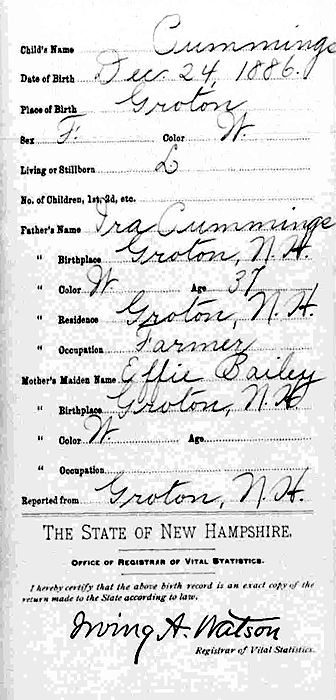 Child's Name Cummings
Date of Birth Dec. 24, 1886.
Place of Birth Groton
Sex F. Color W.
Living or Stillborn L
No. of Children, 1st, 2d, etc.
Father's Name Ira Cummings
" Birthplace Groton, N.H.
" Color W Age 37
" Residence Groton, N.H.
" Occupation Farmer
Mother's Maiden Name Effie Bailey
" Birthplace Groton, N.H.
" Color W. Age
" Occupation
Reported from Groton, N.H.
THE STATE OF NEW HAMPSHIRE,
OFFICE OF REGISTRAR OF VITAL STATISTICS.
I hereby certify that the above birth record is an exact copy of the
return made to the State according to law.
Irving A. Watson
Registrar of Vital Statistics.